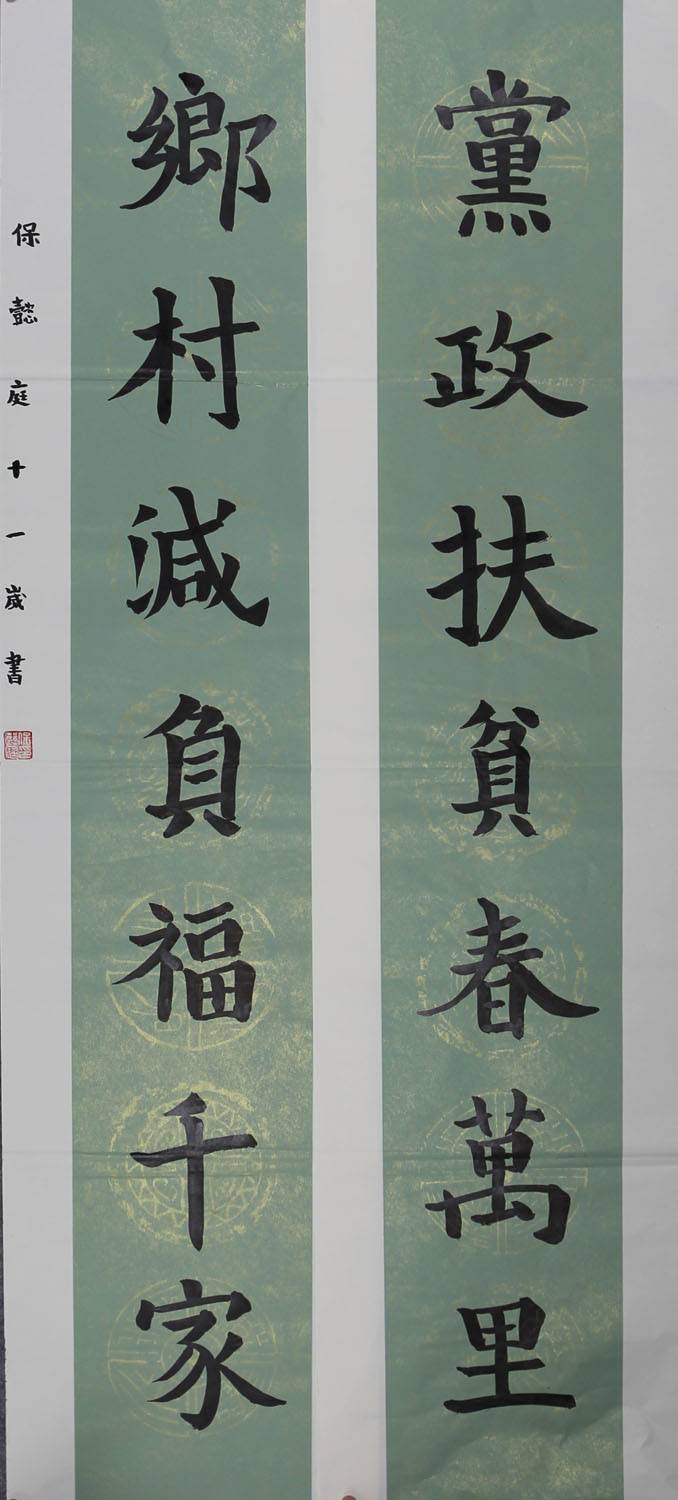 黨政扶貧春萬里
鄉村減負福千家
保懿庭十一歲書